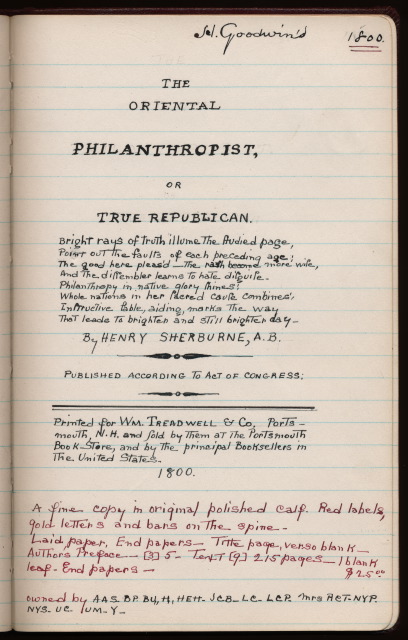 H. Goodwin's 1800.
THE
ORIENTAL
PHILANTHROPIST,
OR
TRUE REPUBLICAN.
Bright rays of truth illume the studied page,
Point out the faults of each preceding age;
The good here pleas'd — the rash become more wise,
And the dissembler learns to hate disguise.
Philanthropy in native glory shines;
Whole nations in her sacred cause combines;
Instructive fable, aiding, marks the way
That leads to brighter and still brighter day —
By HENRY SHERBURNE, A.B.
PUBLISHED ACCORDING TO ACT OF CONGRESS:
Printed for WM. TREADWELL & Co, PORTS-
mouth, N.H. and sold by them at the Portsmouth
Book-Store, and by the principal Booksellers in
The United States.
1800.
A fine copy in original polished calf. Red labels,
gold letters and bars on the spine —
Laid paper, End papers — Title page, verso blank —
Authors Preface — [3] 5 — Text [9] 215 pages — 1 blank
leaf — End papers —
$25.00
owned by AAS. BP. BU, H, HEH. JCB — LC — LCP. NYP.
NYS. UC UM — Y —